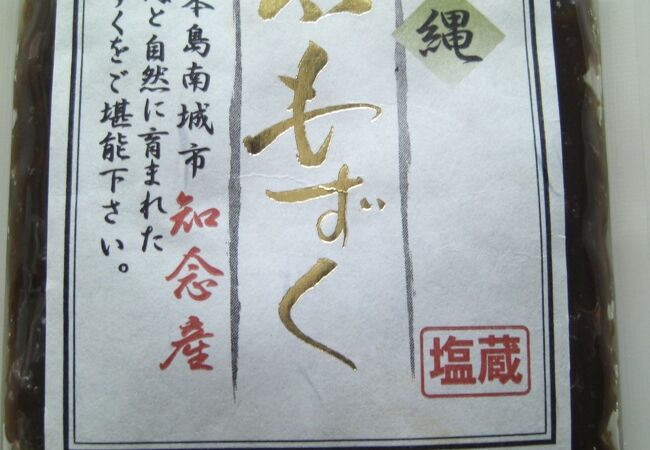 縄
塩蔵
もずく
本島南城市 知念産
と自然に育まれた
くをご堪能下さい。